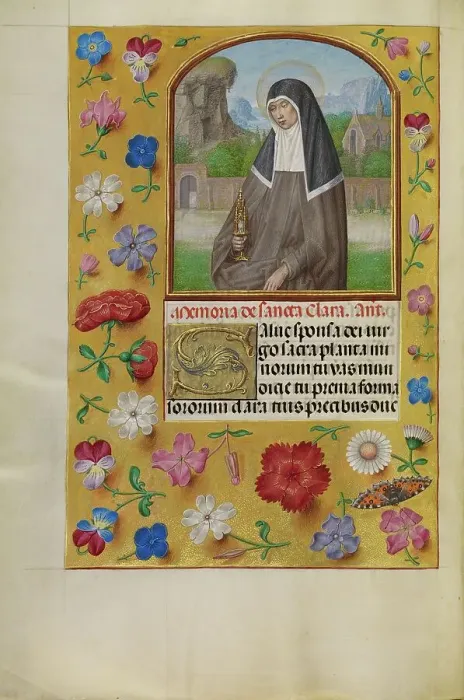 Memoria de sancta Clara. Anᵃ.
Salue sponsa dei uir
go sacra planta mi
norum tu vas mun
dicie tu preuia forma
sororum clara tuis precibus duc